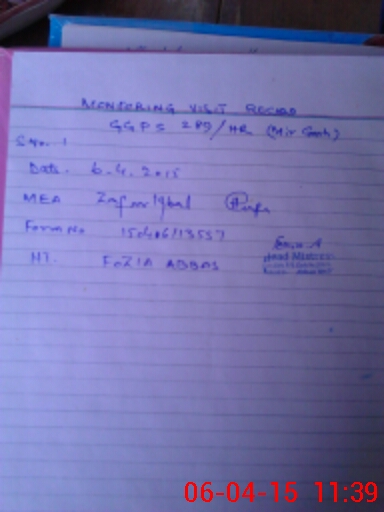 MONITORING VISIT RECORD
GGPS 289/HR (Mir Garh)
S.No. 1
Date. 6.4.2015
MEA Zafar Iqbal
Form No 150406/113557
HT. FOZIA ABBAS
Head Mistress
06-04-15 11:39